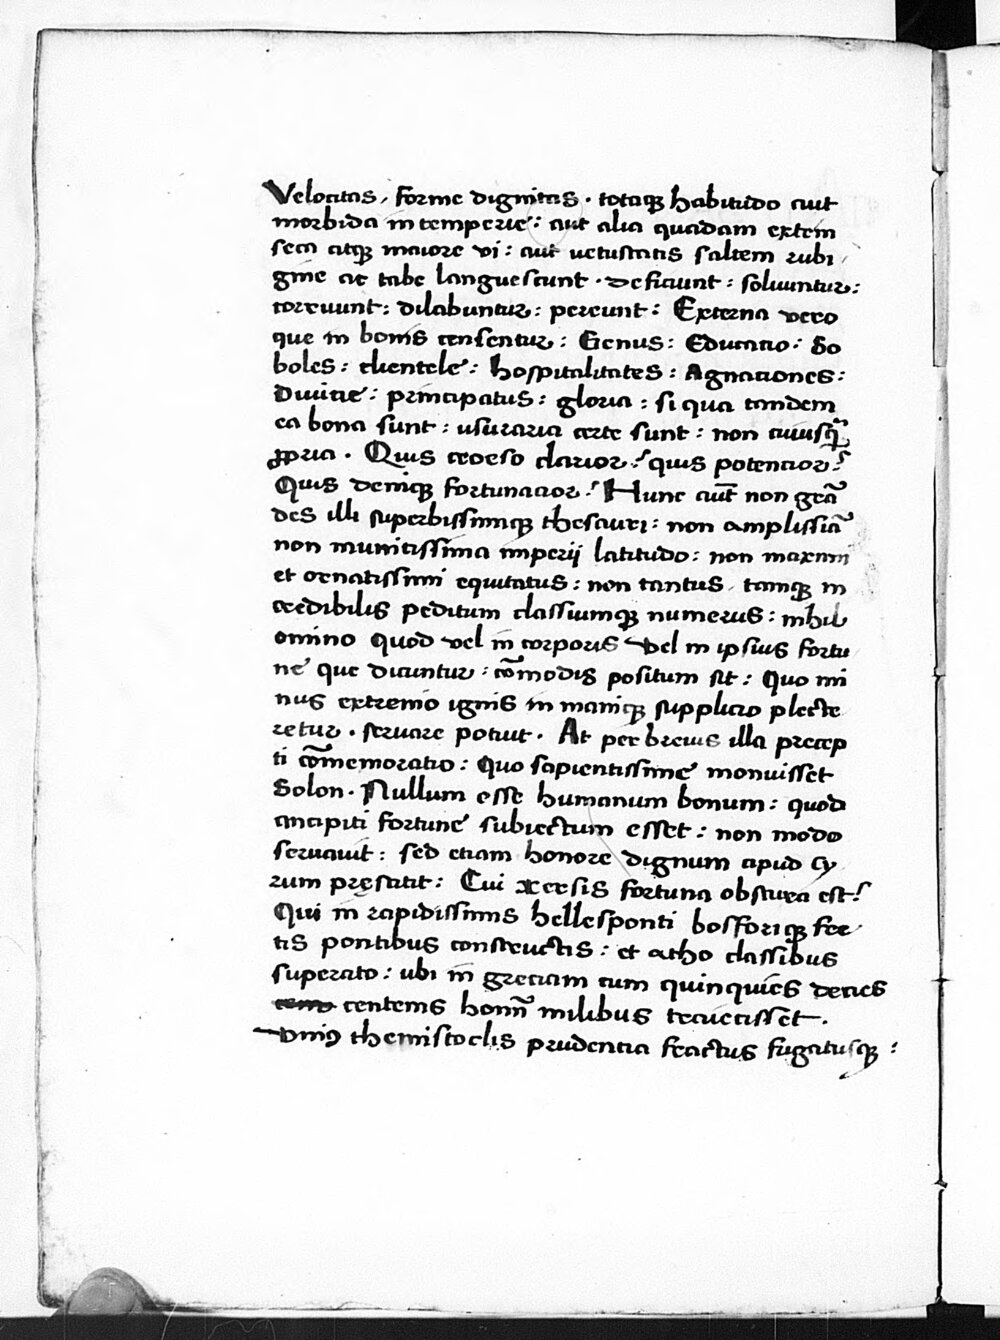 Velocitas, forme dignitas · totaqꝫ habitudo aut
morbida intemperie : aut alia quadam extrin
seca atqꝫ maiore vi : aut uetustatis saltem rubi
gine ac tabe languescunt · deficiunt : soluuntur :
corruunt : dilabuntur : pereunt : Externa vero
que in bonis censentur : Genus : Educatio : So
boles : clientele : hospitalitates : Agnationes :
Diuitie : principatus : gloria : si qua tandem
ea bona sunt : usuraria certe sunt : non cuiusqꝫ
ꝓpria · Quis croeso clarior ? quis potencior ?
Quis deniqꝫ fortunacior ? Hunc aut̄ non grā
des illi superbissimiqꝫ thesauri : non amplissiā
non munitissima imperij latitudo : non maximi
et ornatissimi equitatus : non tantus tamqꝫ in
credibilis peditum classiumqꝫ numerus : nihil
omino quod vel in corporis vel in ipsius fortu
ne que dicuntur : cōmodis positum sit : Quo mi
nus extremo ignis in maniqꝫ supplicio plecte
retur · seruare potuit · At per breuis illa precep
ti cōmemoratio : Quo sapientissime monuisset
Solon · Nullum esse humanum bonum : quod
ancipiti fortune subiectum esset : non modo
seruauit : sed etiam honore dignum apud Cy
rum pręstitit : Cui xersis fortuna obscura est ?
Qui in rapidissimis hellesponti bosforiqꝫ fre
tis pontibus constructis : et atho classibus
superato : ubi in greciam cum quinquies decies
centenis hoīm̄ milibus traiecisset ·
vniꝰ themistoclis prudentia fractus fugatusqꝫ :